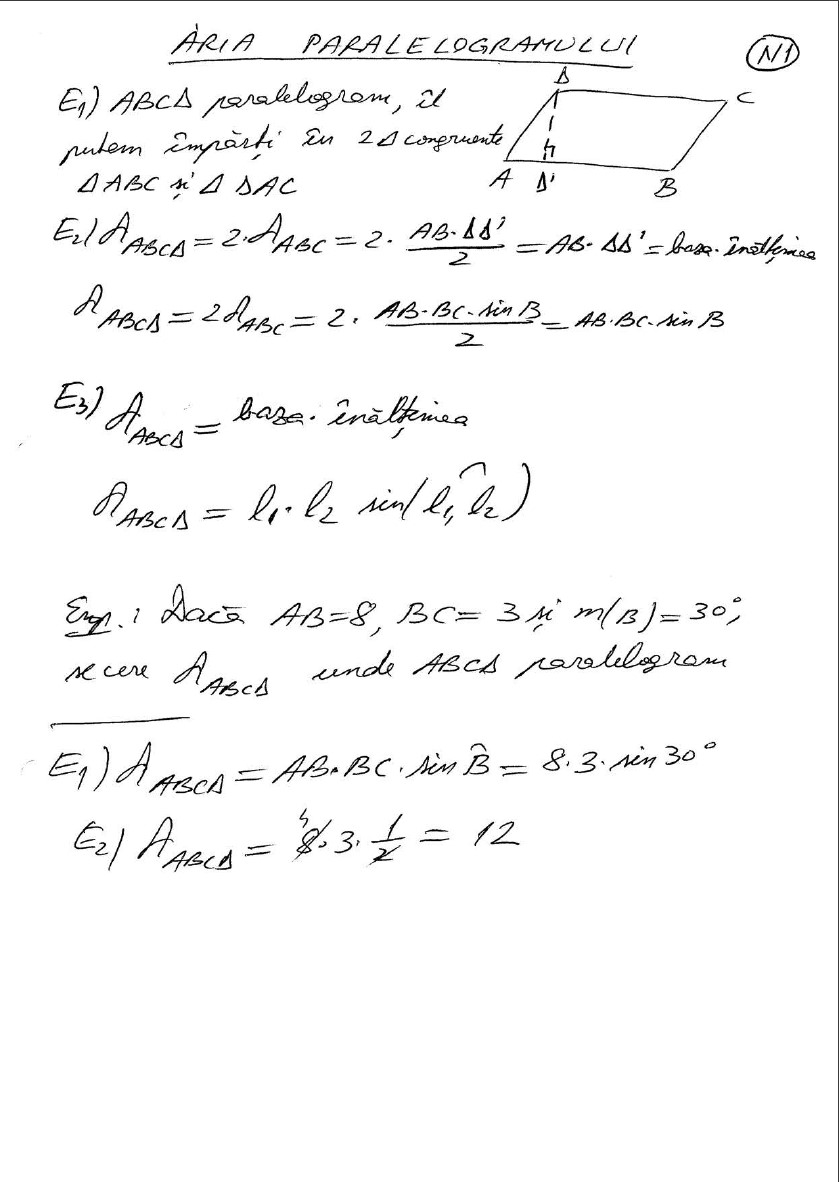 ARIA PARALELOGRAMULUI
N1
E1) ABCΔ paralelogram, îl
putem împărți în 2Δ congruente
ΔABC și Δ ΔAC
Δ
C
A Δ' B
E2) A_ABCΔ = 2·A_ABC = 2 · (AB·ΔΔ')/2 = AB·ΔΔ' = baza·înălțimea
A_ABCΔ = 2A_ABC = 2 · (AB·BC·sin B)/2 = AB·BC·sin B
E3) A_ABCΔ = baza·înălțimea
A_ABCΔ = l1·l2 sin(l1,l2)
Exp.: Dacă AB=8, BC=3 și m(B)=30°,
se cere A_ABCΔ unde ABCΔ paralelogram
E1) A_ABCΔ = AB·BC·sin B̂ = 8·3·sin 30°
E2) A_ABCΔ = 8·3·1/2 = 12